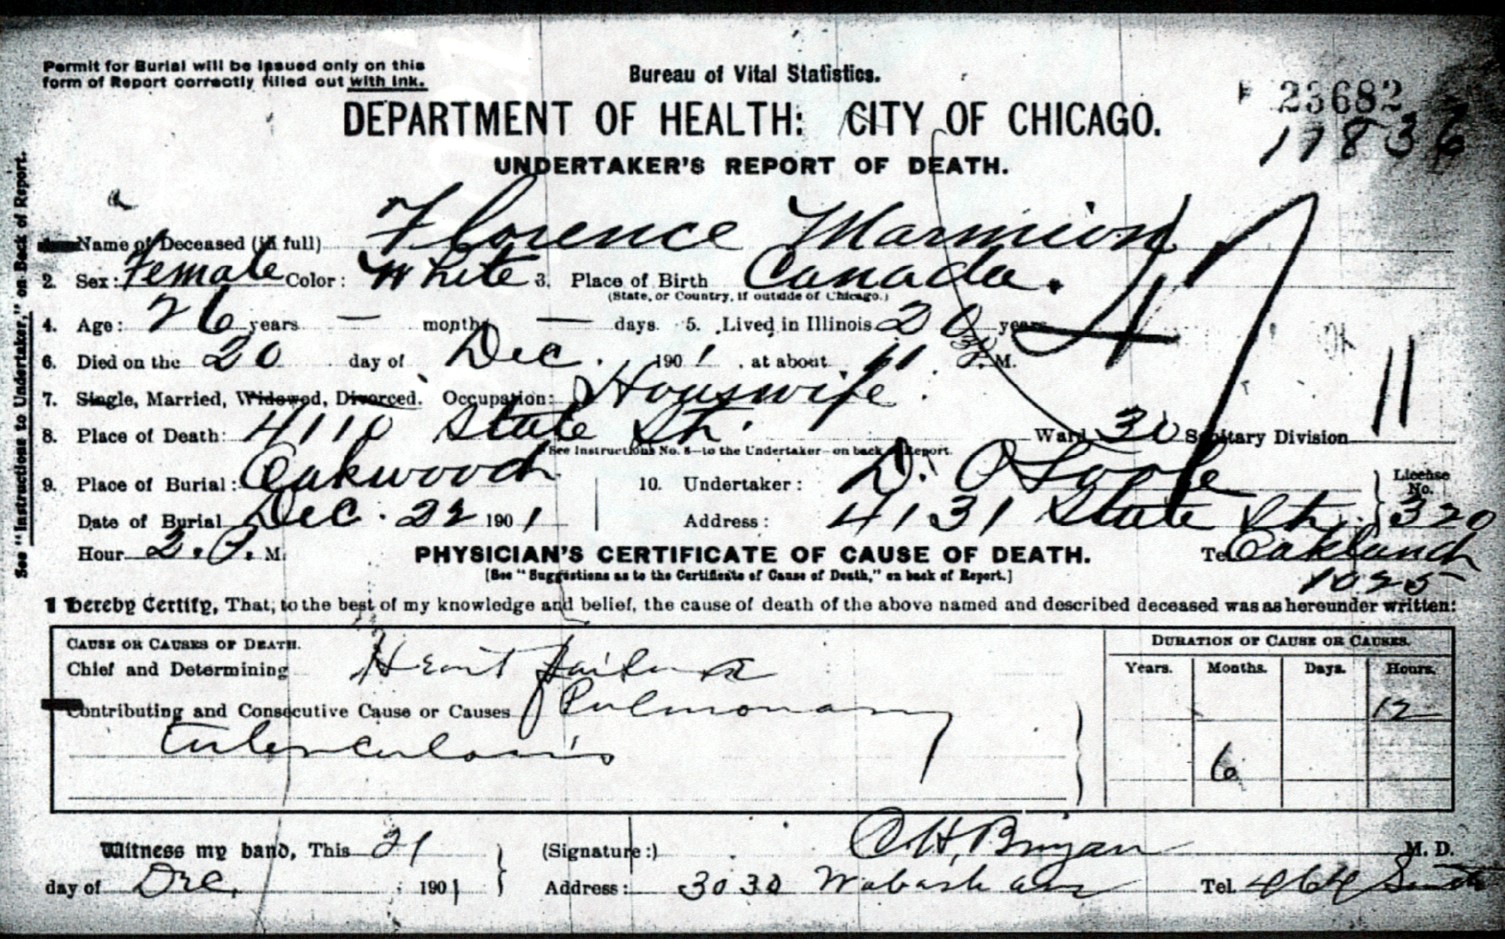 Permit for Burial will be issued only on this
form of Report correctly filled out with ink.
Bureau of Vital Statistics.
23682
17836
DEPARTMENT OF HEALTH: CITY OF CHICAGO.
UNDERTAKER'S REPORT OF DEATH.
See "Instructions to Undertaker," on Back of Report.
Name of Deceased (in full) Florence Marmion
2. Sex: Female Color: White 3. Place of Birth Canada.
(State, or Country, if outside of Chicago.)
4. Age: 26 years — months — days. 5. Lived in Illinois 20 years
6. Died on the 20 day of Dec. 1901, at about 11 P.M.
7. Single, Married, Widowed, Divorced. Occupation: Houswife.
8. Place of Death: 4110 State St. Ward 30 Sanitary Division 11
See Instructions No. 8—to the Undertaker—on back of Report.
9. Place of Burial: Oakwood 10. Undertaker: D. O'Toole License No. 320
Date of Burial Dec. 22 1901 Address: 4131 State St.
Hour 2. P. M. PHYSICIAN'S CERTIFICATE OF CAUSE OF DEATH. Tel Oakland
1025
[See "Suggestions as to the Certificate of Cause of Death," on back of Report.]
I hereby Certify, That, to the best of my knowledge and belief, the cause of death of the above named and described deceased was as hereunder written:
CAUSE OR CAUSES OF DEATH. DURATION OF CAUSE OR CAUSES.
Chief and Determining Heart failure Years. Months. Days. Hours.
Contributing and Consecutive Cause or Causes Pulmonary 12
tuberculosis 6
Witness my hand, This 21 (Signature:) M. D.
day of Dec. 1901 Address: 3030 Wabash ave Tel. 464 South